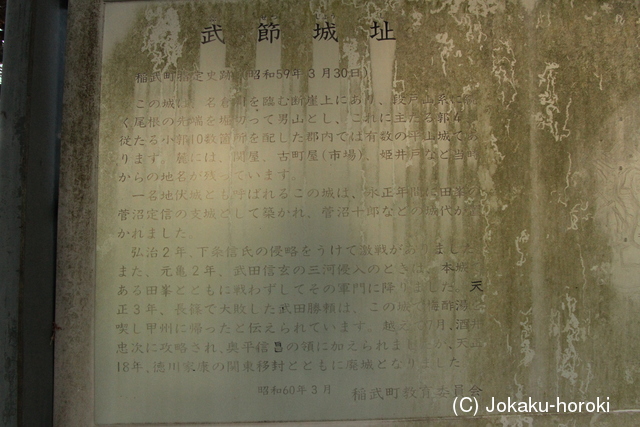 武節城址
稲武町指定史跡(昭和59年3月30日)
この城は、名倉川を臨む断崖上にあり、段戸山系に
く尾根の先端を堀切って男山とし、これに主たる郭4、
従たる小郭10数箇所を配した郡内では有数の平山城であ
ります。麓には、関屋、古町屋(市場)、姫井戸など当時
からの地名が残っています。
一名地伏城とも呼ばれるこの城は、永正年間に田峯の
菅沼定信の支城として築かれ、菅沼十郎などの城代が
かれました。
弘治2年、下条信氏の侵略をうけて激戦がありました。
また、元亀2年、武田信玄の三河侵入のときは、本城で
ある田峯とともに戦わずしてその軍門に降りました。天
正3年、長篠で大敗した武田勝頼は、この城で梅酢湯を
喫し甲州に帰ったと伝えられています。越えて7月、酒井
忠次に攻略され、奥平信昌の領に加えられましたが、天正
18年、徳川家康の関東移封とともに廃城となりました。
昭和60年3月 稲武町教育委員会
(C) Jokaku-horoki